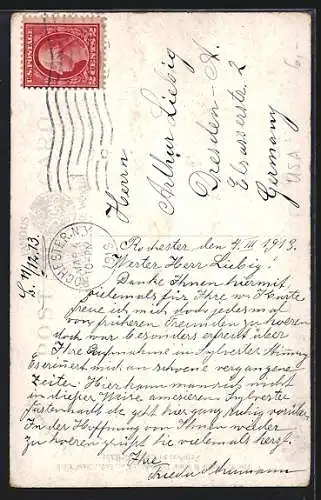 U.S. POSTAGE
2 CENTS 2
Herrn
Arthur Liebig
Dresden - A.
Elsasserstr. 2
Germany
6,-
USA
ROCHESTER, N.Y.
MAR 4
1913
POST CARD
L 11/12.13.
b.
Rochester den 4. III 1913.
Werter Herr Liebig!
Danke Ihnen hiermit
vielemals für Ihre w. Karte
freue ich mich doch jedesmal
von früheren Freunden zu hoeren
doch war besonders erfreut über
Ihre Aufnahme in Sylvester Stimmung
Es erinnert mich an schoene vergangene
Zeiten. Hier kann man sich nicht
in dieser Weise amesieren Sylvester
Fastenhaft etc geht hier ganz ruhig vorüber
In der Hoffnung von Ihnen wieder
zu hoeren grüßt Sie vielemals herzl.
Ihre
Frieda